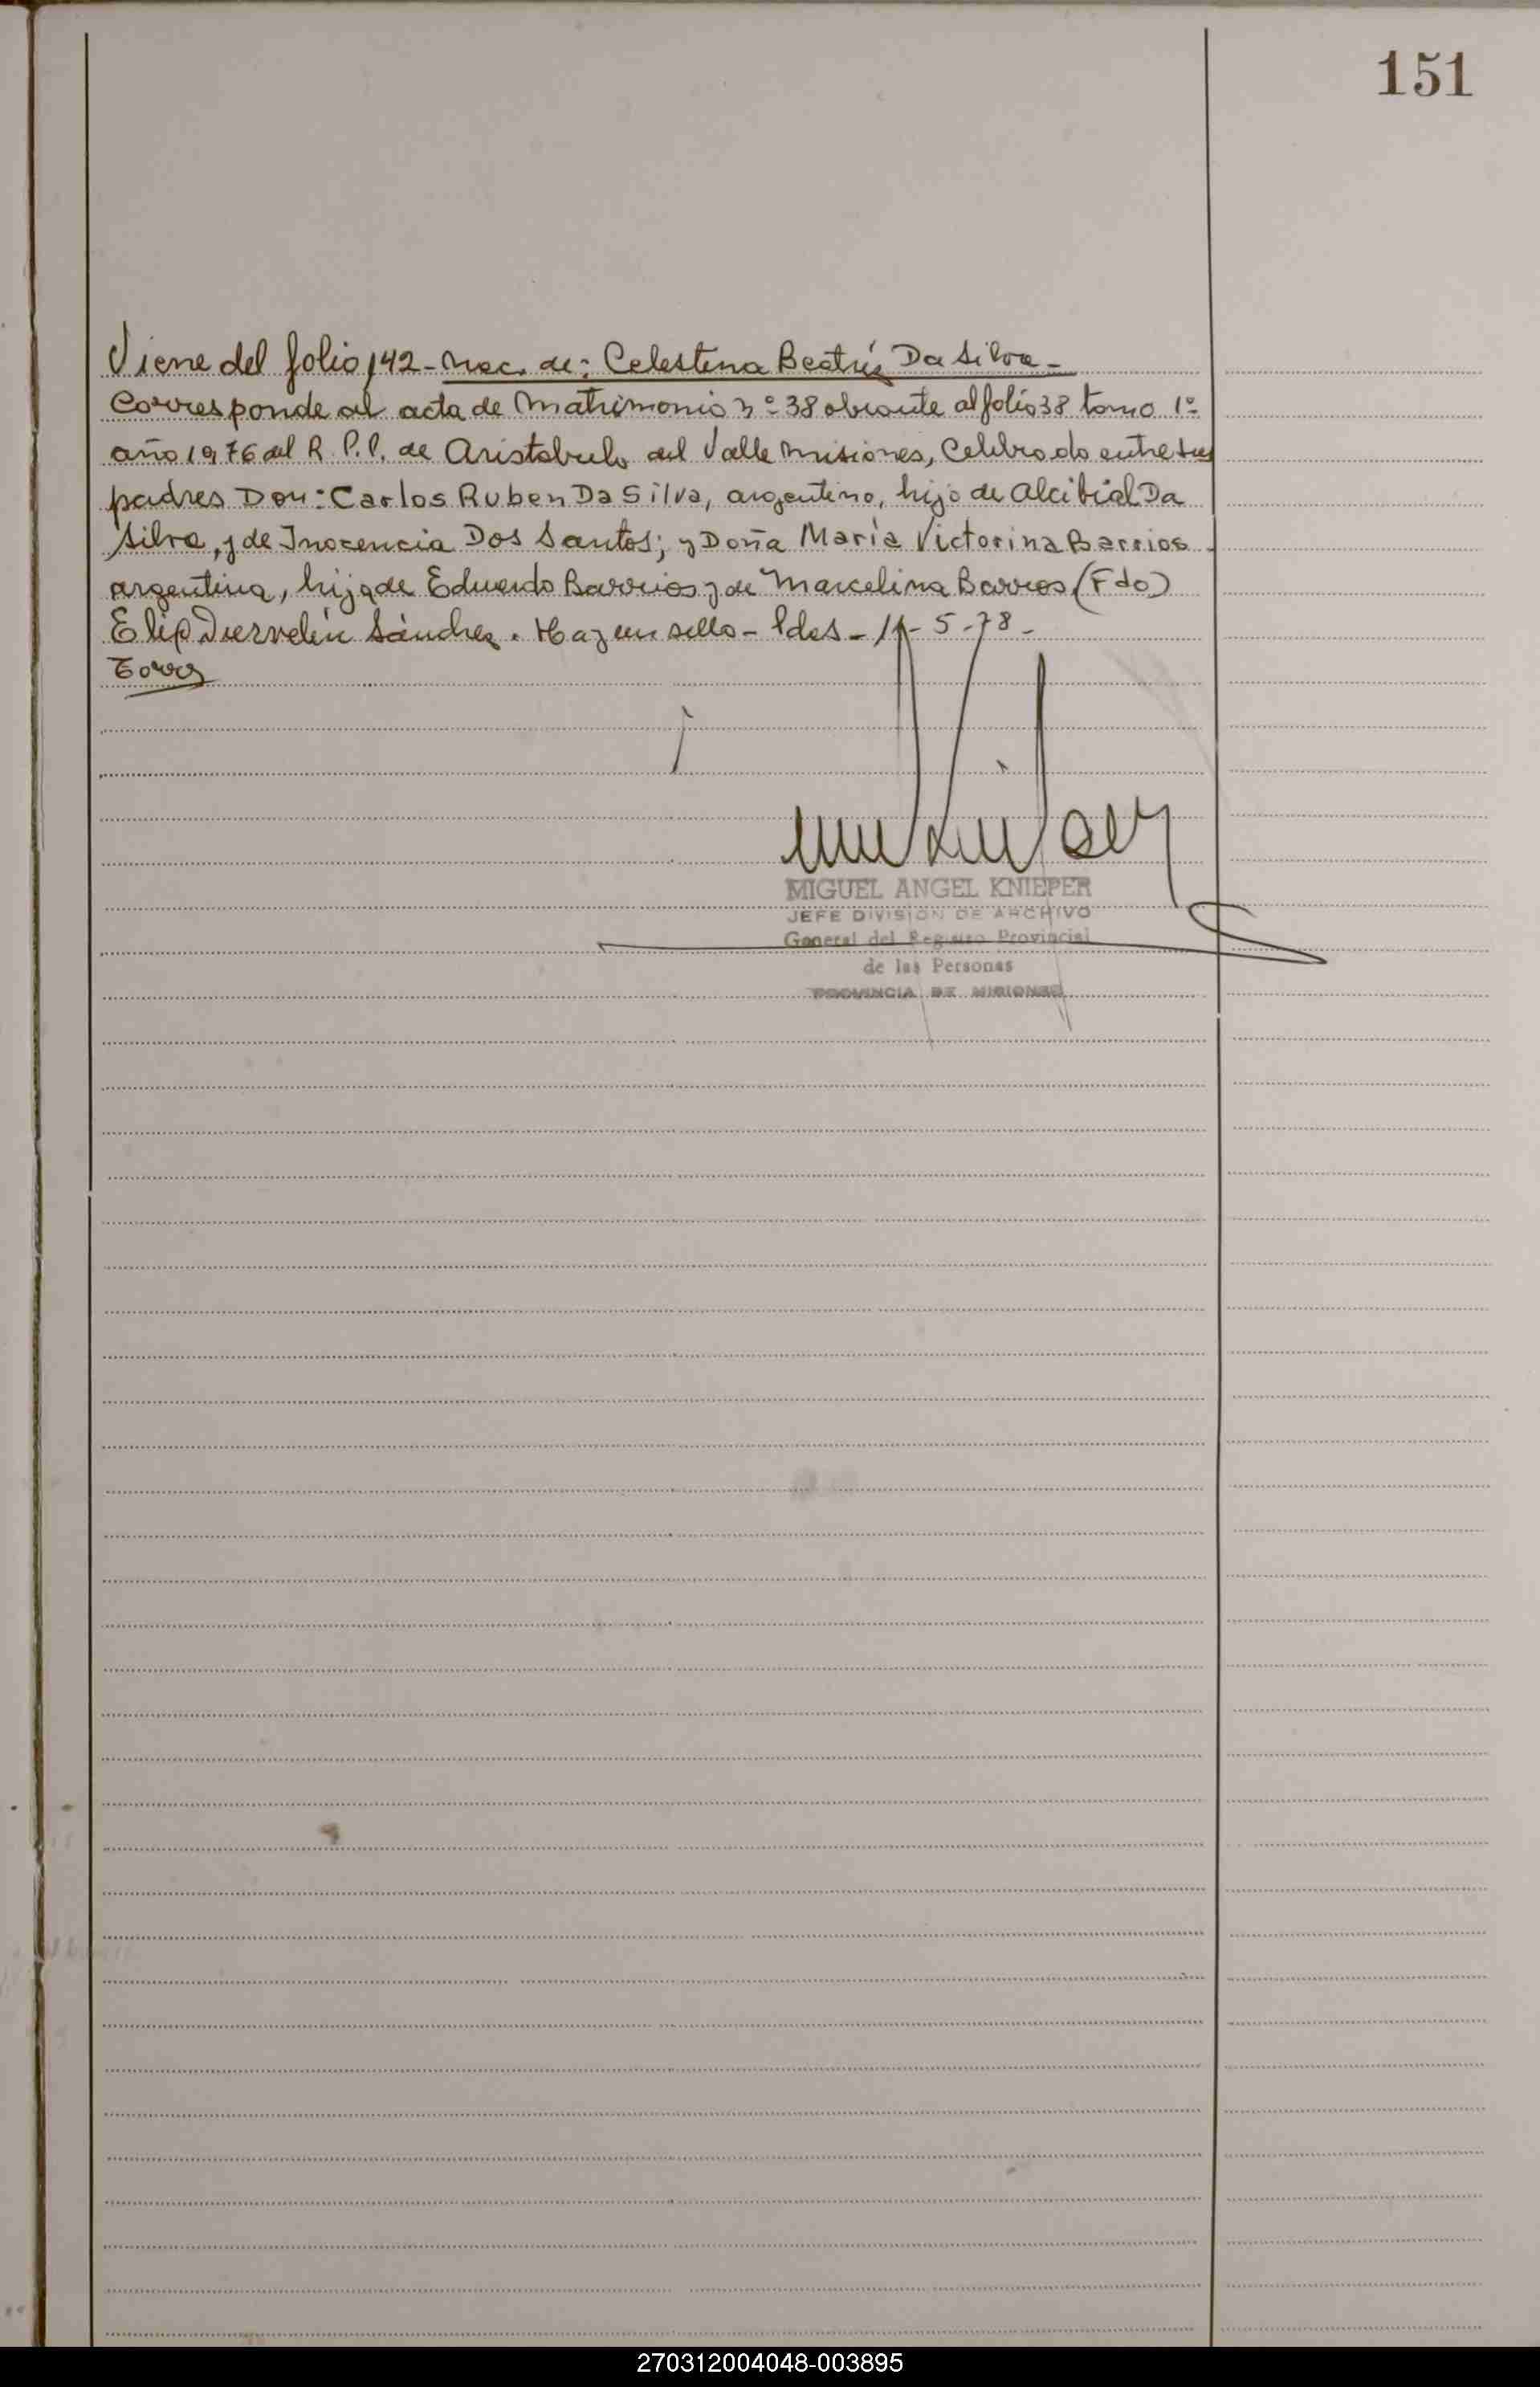 151
Viene del folio 142 - Nac. de: Celestina Beatríz Da Silva -
Corresponde al acta de Matrimonio nº 38 obrante al folio 38 tomo 1º
año 1976 del R. P. P. de Aristobulo del Valle Misiones, Celebrado entre sus
padres Don: Carlos Ruben Da Silva, argentino, hijo de Alcibial Da
Silva, y de Inocencia Dos Santos; y Doña María Victorina Barrios
argentina, hija de Eduardo Barrios y de Marcelina Barros (Fdo)
Sánchez. Hay un sello - Pdas - 5-78 -
MIGUEL ANGEL KNIEPER
JEFE DIVISION DE ARCHIVO
General del Registro Provincial
de las Personas
PROVINCIA DE MISIONES
270312004048-003895